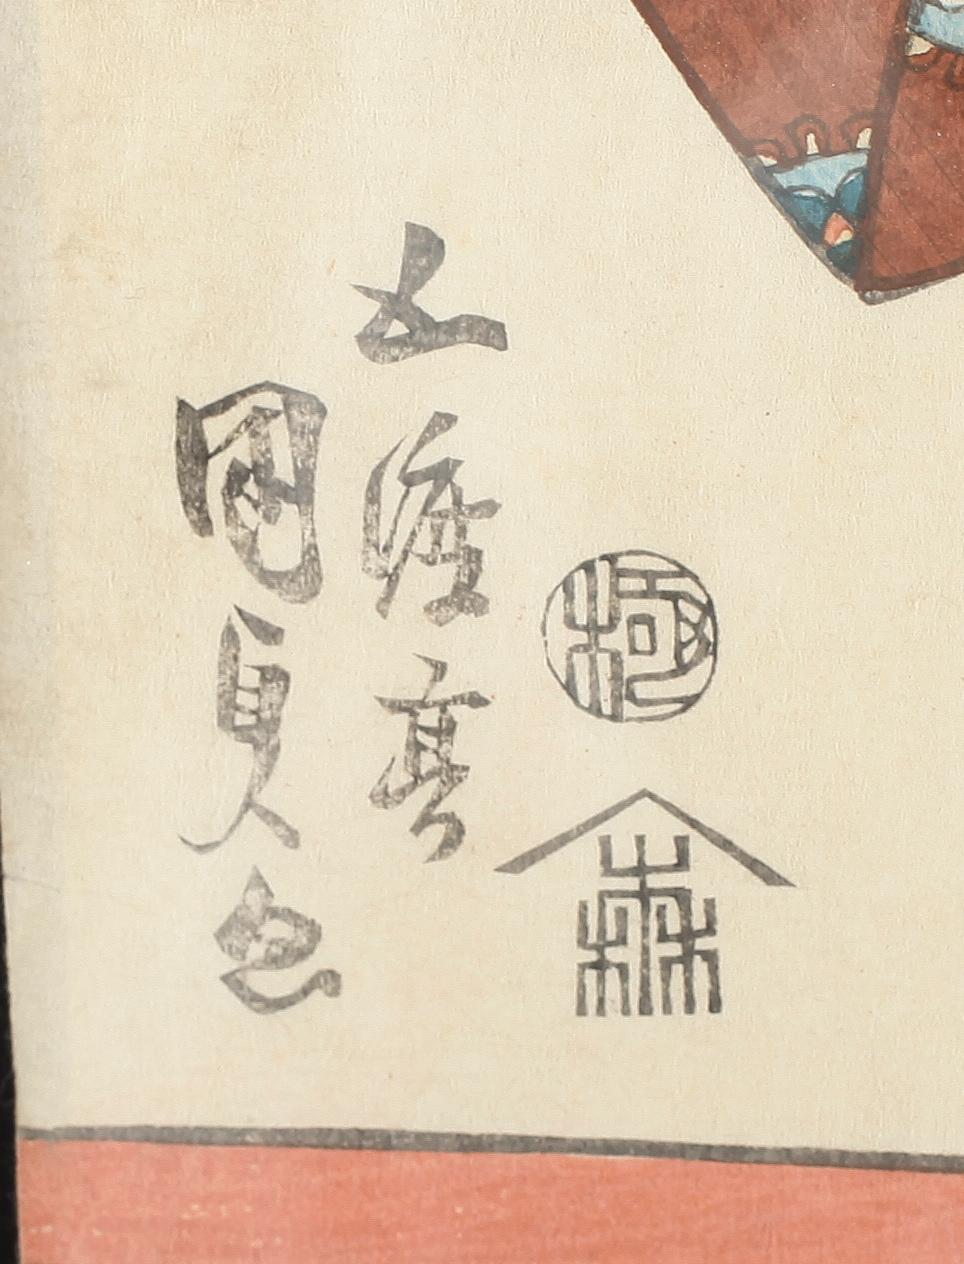 極
森
五渡亭
国貞画